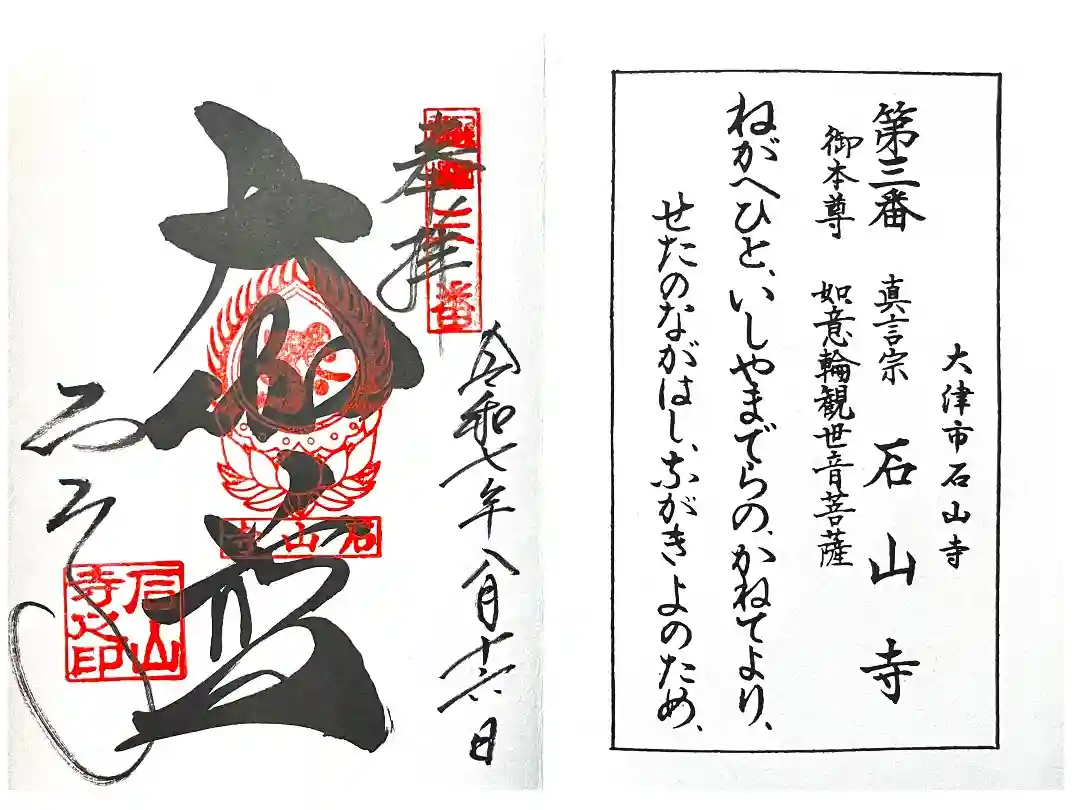 大津市石山寺
第三番 真言宗 石山寺
御本尊 如意輪観世音菩薩
ねがへひと、いしやまでらの、かねてより、
せたのながはし、ながきよのため、
奉拝
令和七年八月十六日
大伽藍
石山寺
石山寺
石山寺之印